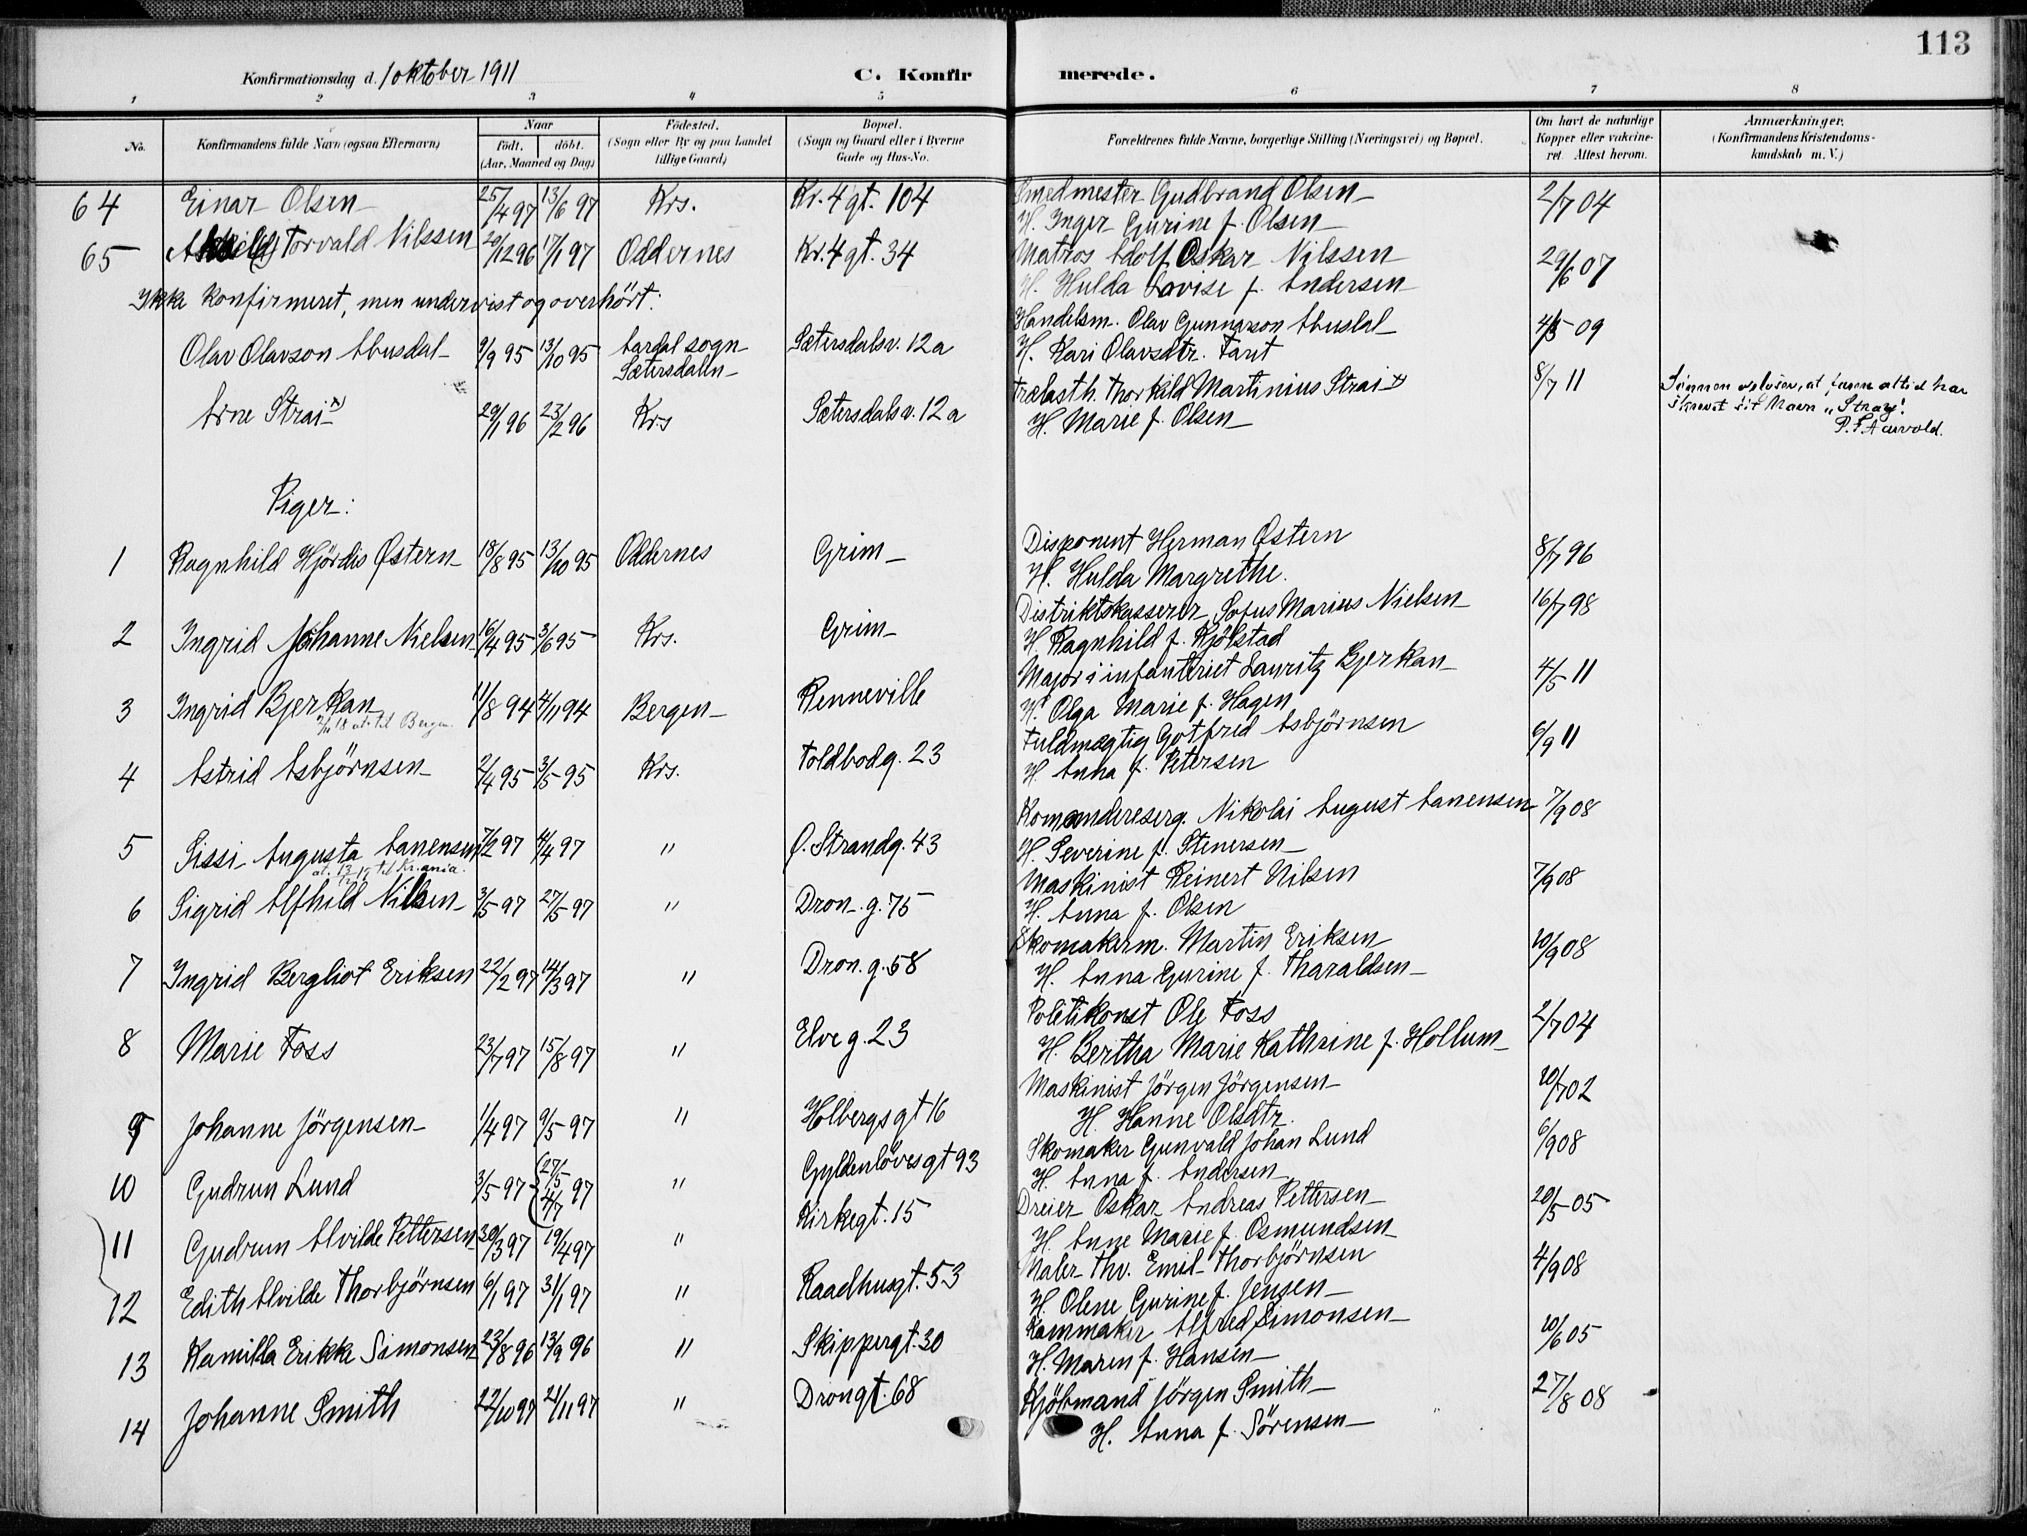 113
Konfirmationsdag d. 1 oktober 1911 C. Konfirmerede.
1 2 3 4 5 6 7 8
No. Konfirmandens fulde Navn (ogsaa Efternavn) Naar født. døbt. (Aar, Maaned og Dag) Fødested. (Sogn eller By og paa Landet tillige Gaard) Bopæl. (Sogn og Gaard eller i Byerne Gade og Hus-No. Forældrenes fulde Navne, borgerlige Stilling (Næringsvei) og Bopæl. Om havt de naturlige Kopper eller vaksineret. Attest herom. Anmærkninger. (Konfirmandens Kristendomskundskab m. V.)
64 Einar Olsen 25/4 97 13/6 97 Krs. Kr. 4 gt. 104 Smedmester Gudbrand Olsen 2/7 04
H. Inger Gurine f. Olsen
65 Torvald Nilssen 20/12 96 17/1 97 Oddernes Kr. 4 gt. 34 Matros Adolf Oskar Nilssen 29/6 07
H. Hulda Lovise f. Andersen
Ikke konfirmeret, men undervist og overhört:
Olav Olavson Abusdal 9/9 95 13/10 95 Aardal sogn Sætersdalen Sætersdalsv. 12a Handelsm. Olav Gunnarson Abusdal 4/5 09
H. Kari Olavsdtr. Farit
Arne Strai x) 29/1 96 23/2 96 Krs Sætersdalsv. 12a Trælasth. Thorkild Martinius Strai x) 8/7 11 Sönnen oplyser, at faren altid har
H. Marie f. Olsen skrevet sit Navn "Stray".
P. S. Aarvold.
Piger:
1 Ragnhild Hjördis Østern 18/8 95 13/10 95 Oddernes Grim Disponent Herman Østern 8/7 96
H. Hulda Margrethe.
2 Ingrid Johanne Nielsen 16/4 95 3/6 95 Krs. Grim Distriktskasserer Sofus Marius Nielsen 16/7 98
H. Ragnhild f. Kjölstad
3 Ingrid Bjerkan 11/8 94 4/11 94 Bergen Renneville Major i infanteriet Lauritz Bjerkan 4/5 11
18 at. til Bergen H. Olga Marie f. Hagen
4 Astrid Asbjörnsen 2/4 95 3/5 95 Krs. Toldbodg. 23 Fuldmægtig Gotfred Asbjörnsen 6/9 11
H. Anna f. Petersen
5 Sissi Augusta Aanensen 7/2 97 4/4 97 " Ø. Strandg. 43 Komandereserg. Nikolai August Aanensen 7/9 08
at. til Kr.ania. H. Severine f. Stenersen
6 Sigrid Alfhild Nilsen 3/5 97 27/5 97 " Dron. g. 75 Maskinist Reinert Nilsen 7/9 08
H. Anna f. Olsen
7 Ingrid Bergliot Eriksen 22/2 97 14/3 97 " Dron. g. 58 Skomakerm. Martin Eriksen 10/9 08
H. Anna Gurine f. Tharaldsen
8 Marie Foss 23/7 97 15/8 97 " Elveg. 23 Politikonst Ole Foss 2/7 04
H. Bertha Marie Kathrine f. Hollum
9 Johanne Jörgensen 1/4 97 9/5 97 " Holbergsgt 16 Maskinist Jörgen Jörgensen 10/7 02
H. Hanne Olsdtr.
10 Gudrun Lund 3/5 97 (27/5 4/7 97 " Gyldenlövesgt 93 Skomaker Gunvald Johan Lund 6/9 08
H. Anna f. Andersen
11 Gudrun Alvilde Pettersen 30/3 97 19/4 97 " Kirkegt. 15 Dreier Oskar Andreas Pettersen 20/5 05
H. Anne Marie f. Osmundsen
12 Edith Alvilde Thorbjörnsen 6/1 97 31/1 97 " Raadhusgt. 53 Maler Thv. Emil Thorbjörnsen 4/9 08
H. Olene Gurine f. Jensen
13 Kamilla Erikke Simonsen 23/8 96 13/9 96 " Skippergt. 30 Kammaker Alfred Simonsen 10/6 05
H. Maren f. Hansen
14 Johanne Smith 22/10 97 21/11 97 " Drongt. 68 Kjöbmand Jörgen Smith 27/8 08
H. Anna f. Sörensen